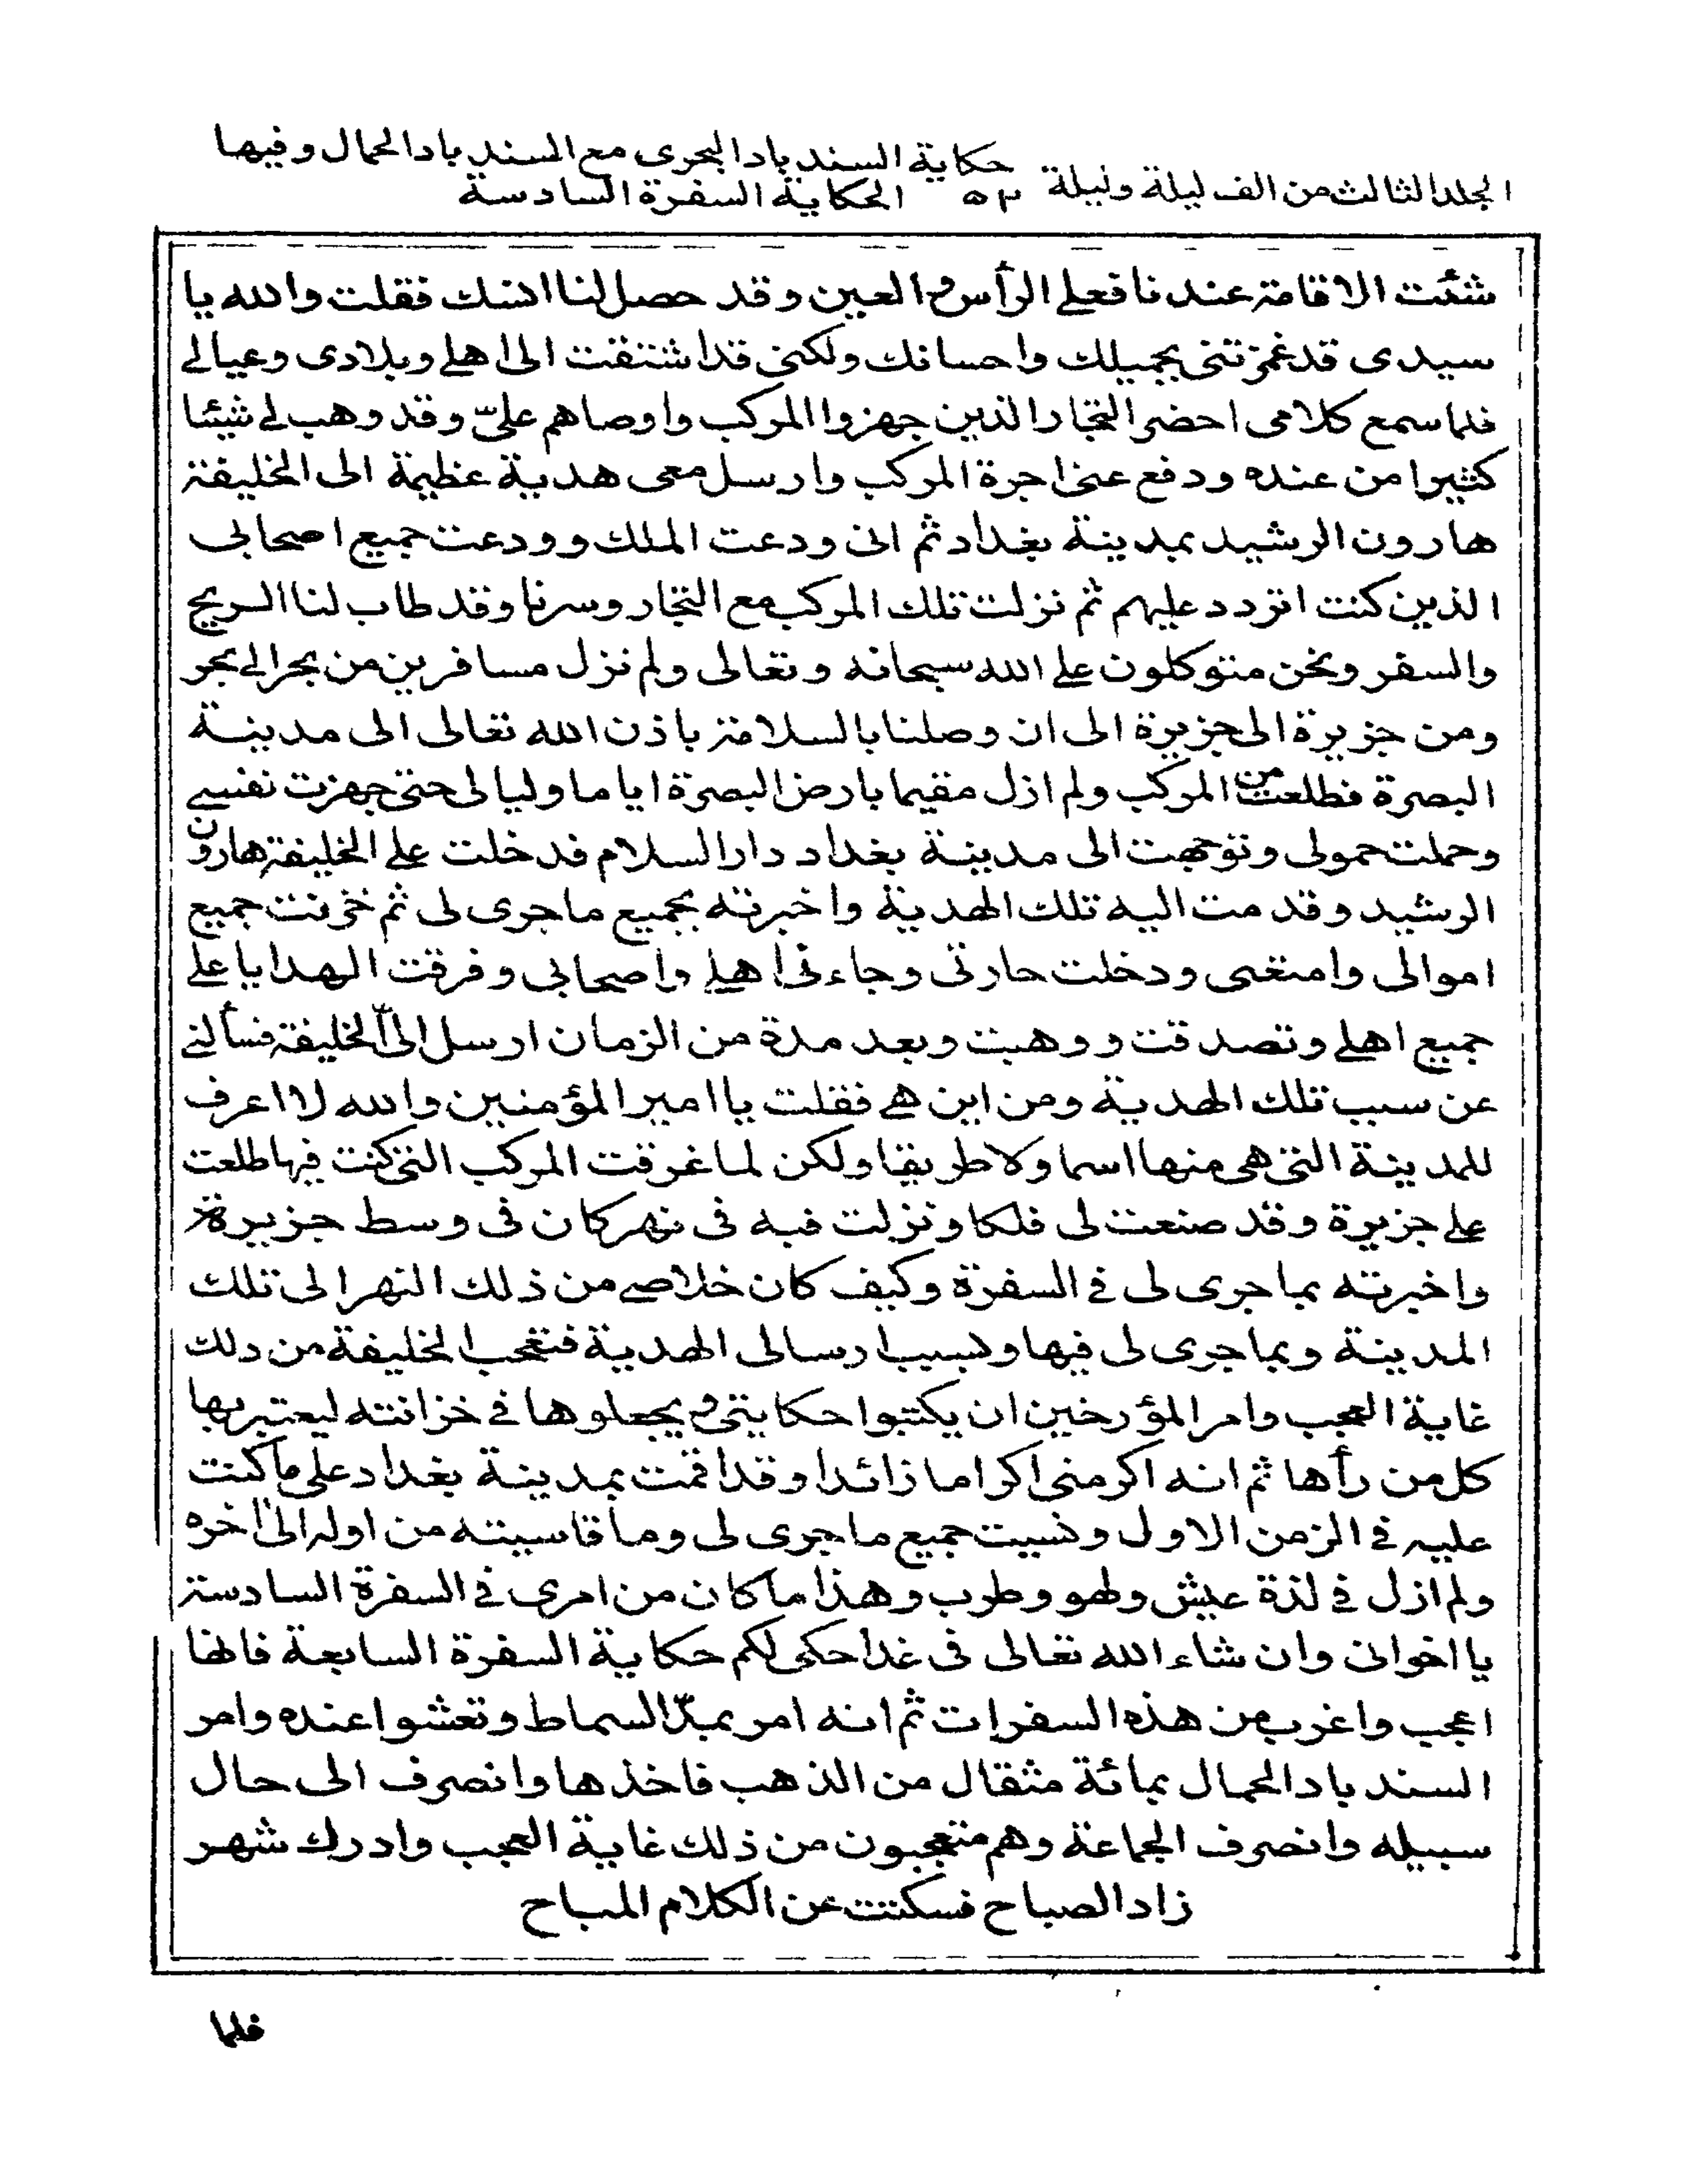 حكاية السندباد البحرى مع السندباد الحمال وفيها
المجلد الثالث من الف ليلة وليلة ٥٣ الحكاية السفرة السادسة
شئت الاقامة عندنا فعلى الرأس والعين وقد حصل لنا انسك فقلت والله يا
سيدى قد غمرتنى بجميلك واحسانك ولكنى قد اشتقت الى اهلى وبلادى وعيالى
فلما سمع كلامى احضر التجار الذين جهزوا المركب واوصاهم علىّ وقد وهب لى شيئا
كثيرا من عنده ودفع عنى اجرة المركب وارسل معى هدية عظيمة الى الخليفة
هارون الرشيد بمدينة بغداد ثم انى ودعت الملك وودعت جميع اصحابى
الذين كنت اتردد عليهم ثم نزلت تلك المركب مع التجار وسرنا وقد طاب لنا الريح
والسفر ونحن متوكلون على الله سبحانه وتعالى ولم نزل مسافرين من بحر الى بحر
ومن جزيرة الى جزيرة الى ان وصلنا بالسلامة باذن الله تعالى الى مدينة
البصرة فطلعت من المركب ولم ازل مقيما بارض البصرة اياما وليالى حتى جهزت نفسى
وحملت حمولى وتوجهت الى مدينة بغداد دار السلام فدخلت على الخليفة هارون
الرشيد وقدمت اليه تلك الهدية واخبرته بجميع ما جرى لى ثم خزنت جميع
اموالى وامتعتى ودخلت حارتى وجاءنى اهلى واصحابى وفرقت الهدايا على
جميع اهلى وتصدقت ووهبت وبعد مدة من الزمان ارسل الىّ الخليفة فسألنى
عن سبب تلك الهدية ومن اين هى فقلت يا امير المؤمنين والله لا اعرف
للمدينة التى هى منها اسما ولا طريقا ولكن لما غرقت المركب التى كنت فيها طلعت
على جزيرة وقد صنعت لى فلكا ونزلت فيه فى نهر كان فى وسط جزيرة
واخبرته بما جرى لى فى السفرة وكيف كان خلاصى من ذلك النهر الى تلك
المدينة وبما جرى لى فيها وبسبب ارسالى الهدية فتعجب الخليفة من ذلك
غاية العجب وامر المؤرخين ان يكتبوا حكايتى ويجعلوها فى خزانته ليعتبر بها
كل من رأها ثم انه اكرمنى اكراما زائدا وقد اقمت بمدينة بغداد على ما كنت
عليه فى الزمن الاول ونسيت جميع ما جرى لى وما قاسيته من اوله الى اخره
ولم ازل فى لذة عيش ولهو وطرب وهذا ما كان من امرى فى السفرة السادسة
يا اخوانى وان شاء الله تعالى فى غد احكى لكم حكاية السفرة السابعة فانها
اعجب واغرب من هذه السفرات ثم انه امر بمدّ السماط وتعشوا عنده وامر
السندباد الحمال بمائة مثقال من الذهب فاخذها وانصرف الى حال
سبيله وانصرف الجماعة وهم متعجبون من ذلك غاية العجب وادرك شهر
زاد الصباح فسكتت عن الكلام المباح
فلما